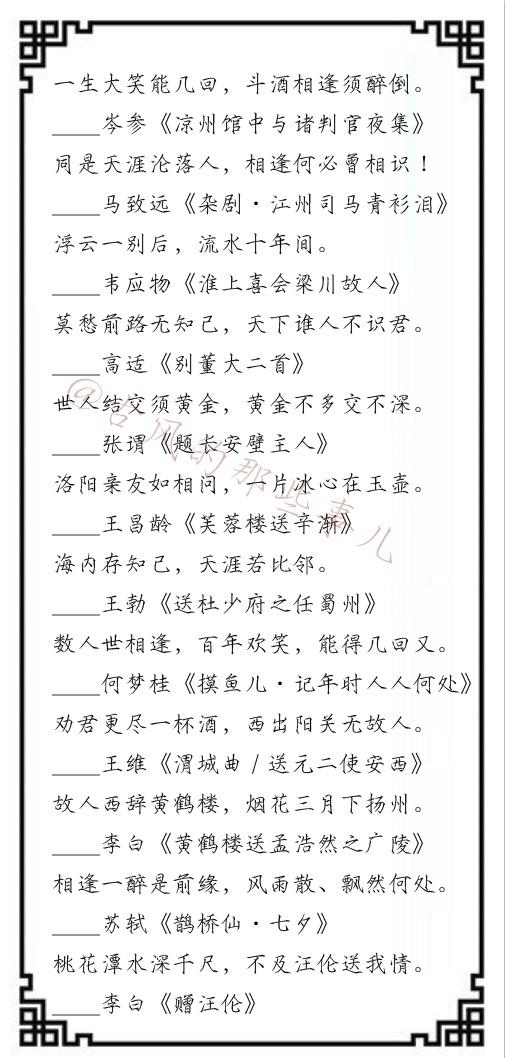 一生大笑能几回，斗酒相逢须醉倒。
____岑参《凉州馆中与诸判官夜集》
同是天涯沦落人，相逢何必曾相识！
____马致远《杂剧·江州司马青衫泪》
浮云一别后，流水十年间。
____韦应物《淮上喜会梁川故人》
莫愁前路无知己，天下谁人不识君。
____高适《别董大二首》
世人结交须黄金，黄金不多交不深。
____张谓《题长安壁主人》
洛阳亲友如相问，一片冰心在玉壶。
____王昌龄《芙蓉楼送辛渐》
海内存知己，天涯若比邻。
____王勃《送杜少府之任蜀州》
数人世相逢，百年欢笑，能得几回又。
____何梦桂《摸鱼儿·记年时人人何处》
劝君更尽一杯酒，西出阳关无故人。
____王维《渭城曲 / 送元二使安西》
故人西辞黄鹤楼，烟花三月下扬州。
____李白《黄鹤楼送孟浩然之广陵》
相逢一醉是前缘，风雨散、飘然何处。
____苏轼《鹊桥仙·七夕》
桃花潭水深千尺，不及汪伦送我情。
____李白《赠汪伦》
@古风的那些事儿